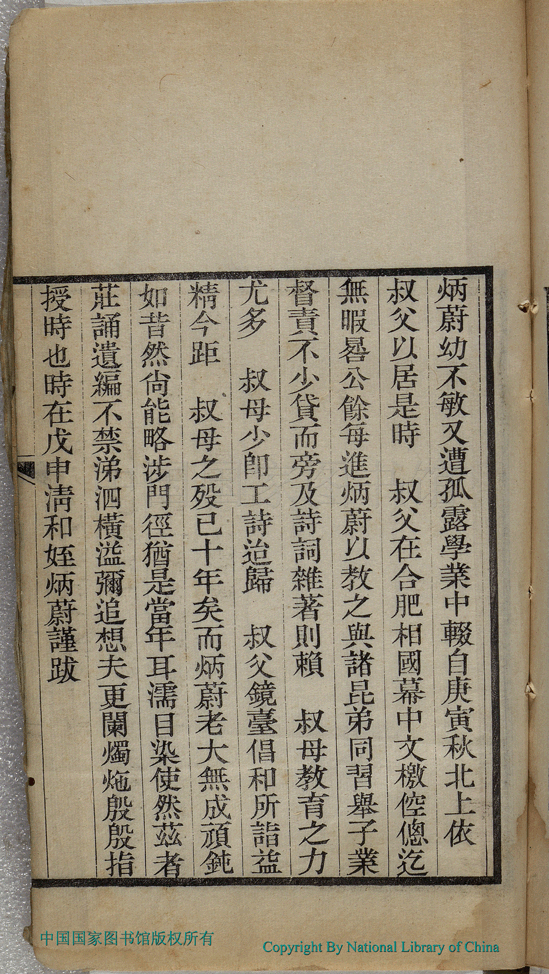 炳蔚幼不敏又遭孤露學業中輟自庚寅秋北上依
叔父以居是時　叔父在合肥相國幕中文檄倥傯迄
無暇晷公餘每進炳蔚以教之與諸昆弟同習舉子業
督責不少貸而旁及詩詞雜著則賴　叔母教育之力
尤多　叔母少卽工詩迨歸　叔父鏡臺倡和所詣益
精今距　叔母之歿已十年矣而炳蔚老大無成頑鈍
如昔然尙能略涉門徑猶是當年耳濡目染使然茲者
莊誦遺編不禁涕泗橫溢彌追想夫更闌燭灺殷殷指
授時也時在戊申清和姪炳蔚謹跋
中国国家图书馆版权所有
Copyright By National Library of China